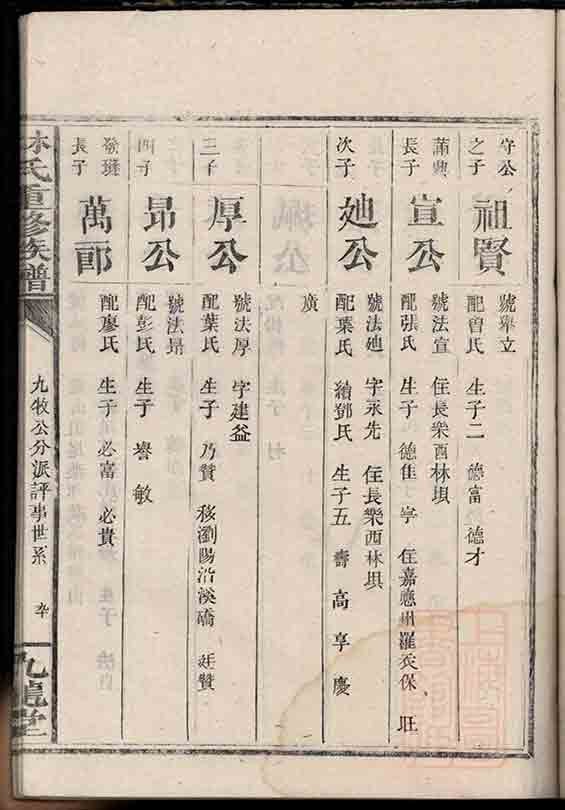 守公
之子
祖賢
號舉立
配曾氏 生子二 德富 德才
蕭典
長子
宣公
號法宣 住長樂西林垻
配張氏 生子 德隹 住嘉應州羅衣保 旺
次子
廸公
號法廸 字永先 住長樂西林垻
配葉氏 續鄧氏 生子五 壽 高 享 慶
廣
三子
厚公
號法厚 字建益
配葉氏 生子 乃贊 移瀏陽沿溪礄 廷贊
四子
昂公
號法昻
配彭氏 生子 敏
長子
萬郎
配廖氏 生子 必富 必貴
林氏重修族譜
九牧公分派評事世系
九龍堂